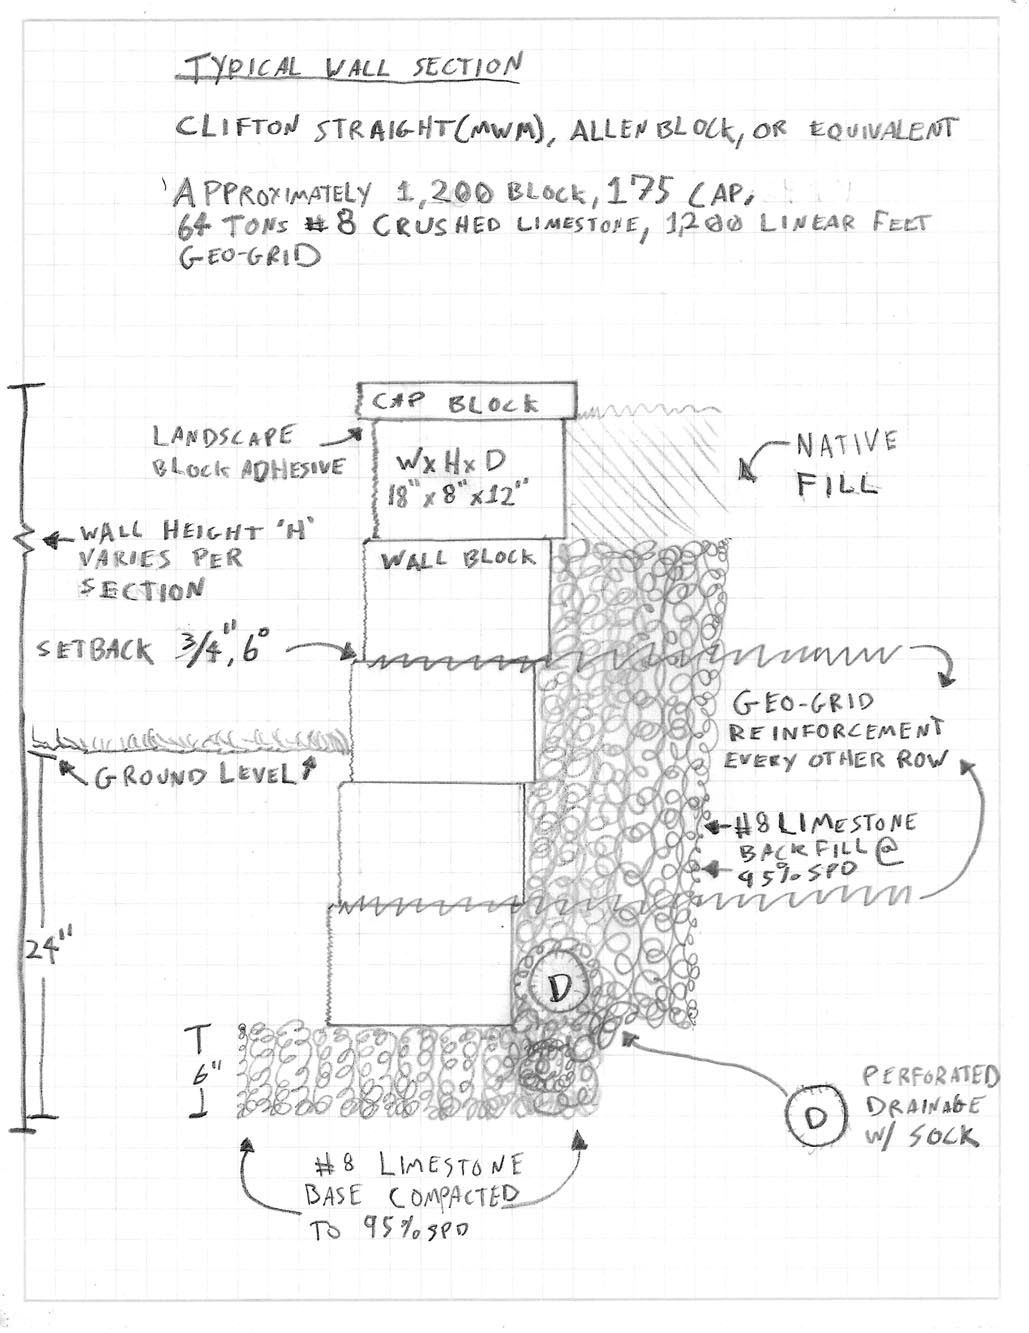 TYPICAL WALL SECTION
CLIFTON STRAIGHT(MWM), ALLEN BLOCK, OR EQUIVALENT
APPROXIMATELY 1,200 BLOCK, 175 CAP,
64 TONS #8 CRUSHED LIMESTONE, 1,200 LINEAR FEET
GEO-GRID
CAP BLOCK
LANDSCAPE
BLOCK ADHESIVE
WxHxD
18" x 8" x 12"
NATIVE
FILL
WALL HEIGHT "H"
VARIES PER
SECTION
WALL BLOCK
SETBACK 3/4", 6°
GEO-GRID
REINFORCEMENT
EVERY OTHER ROW
GROUND LEVEL
#8 LIMESTONE
BACKFILL @
95% SPD
24"
D
6"
PERFORATED
DRAINAGE
W/ SOCK
D
#8 LIMESTONE
BASE COMPACTED
TO 95% SPD